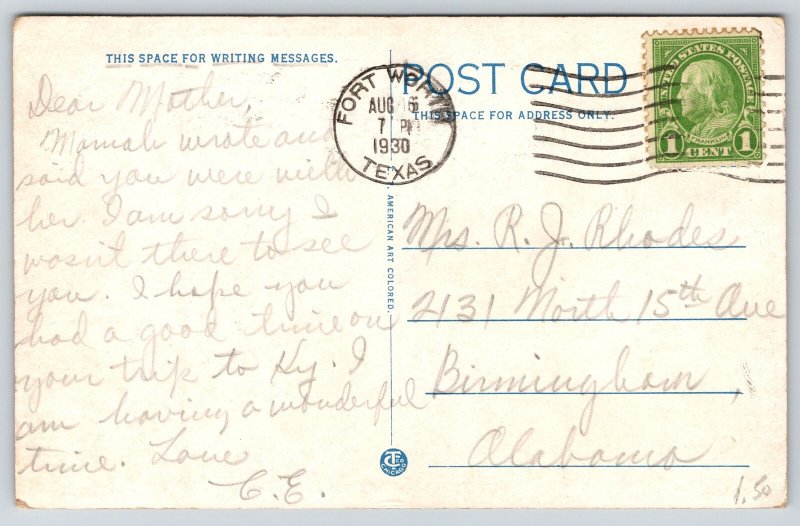 THIS SPACE FOR WRITING MESSAGES.
Dear Mother,
Mamah wrote and
said you were with
her. I am sorry I
wasn't there to see
you. I hope you
had a good time on
your trip to Ky. I
am having a wonderful
time. Love
C.E.
AMERICAN ART COLORED.
CHICAGO
POST CARD
THIS SPACE FOR ADDRESS ONLY.
FORT WORTH
AUG
7 PM
1930
TEXAS
UNITED STATES POSTAGE
FRANKLIN
1 CENT 1
Mrs. R. J. Rhodes
2131 North 15th Ave
Birmingham,
Alabama
1.50